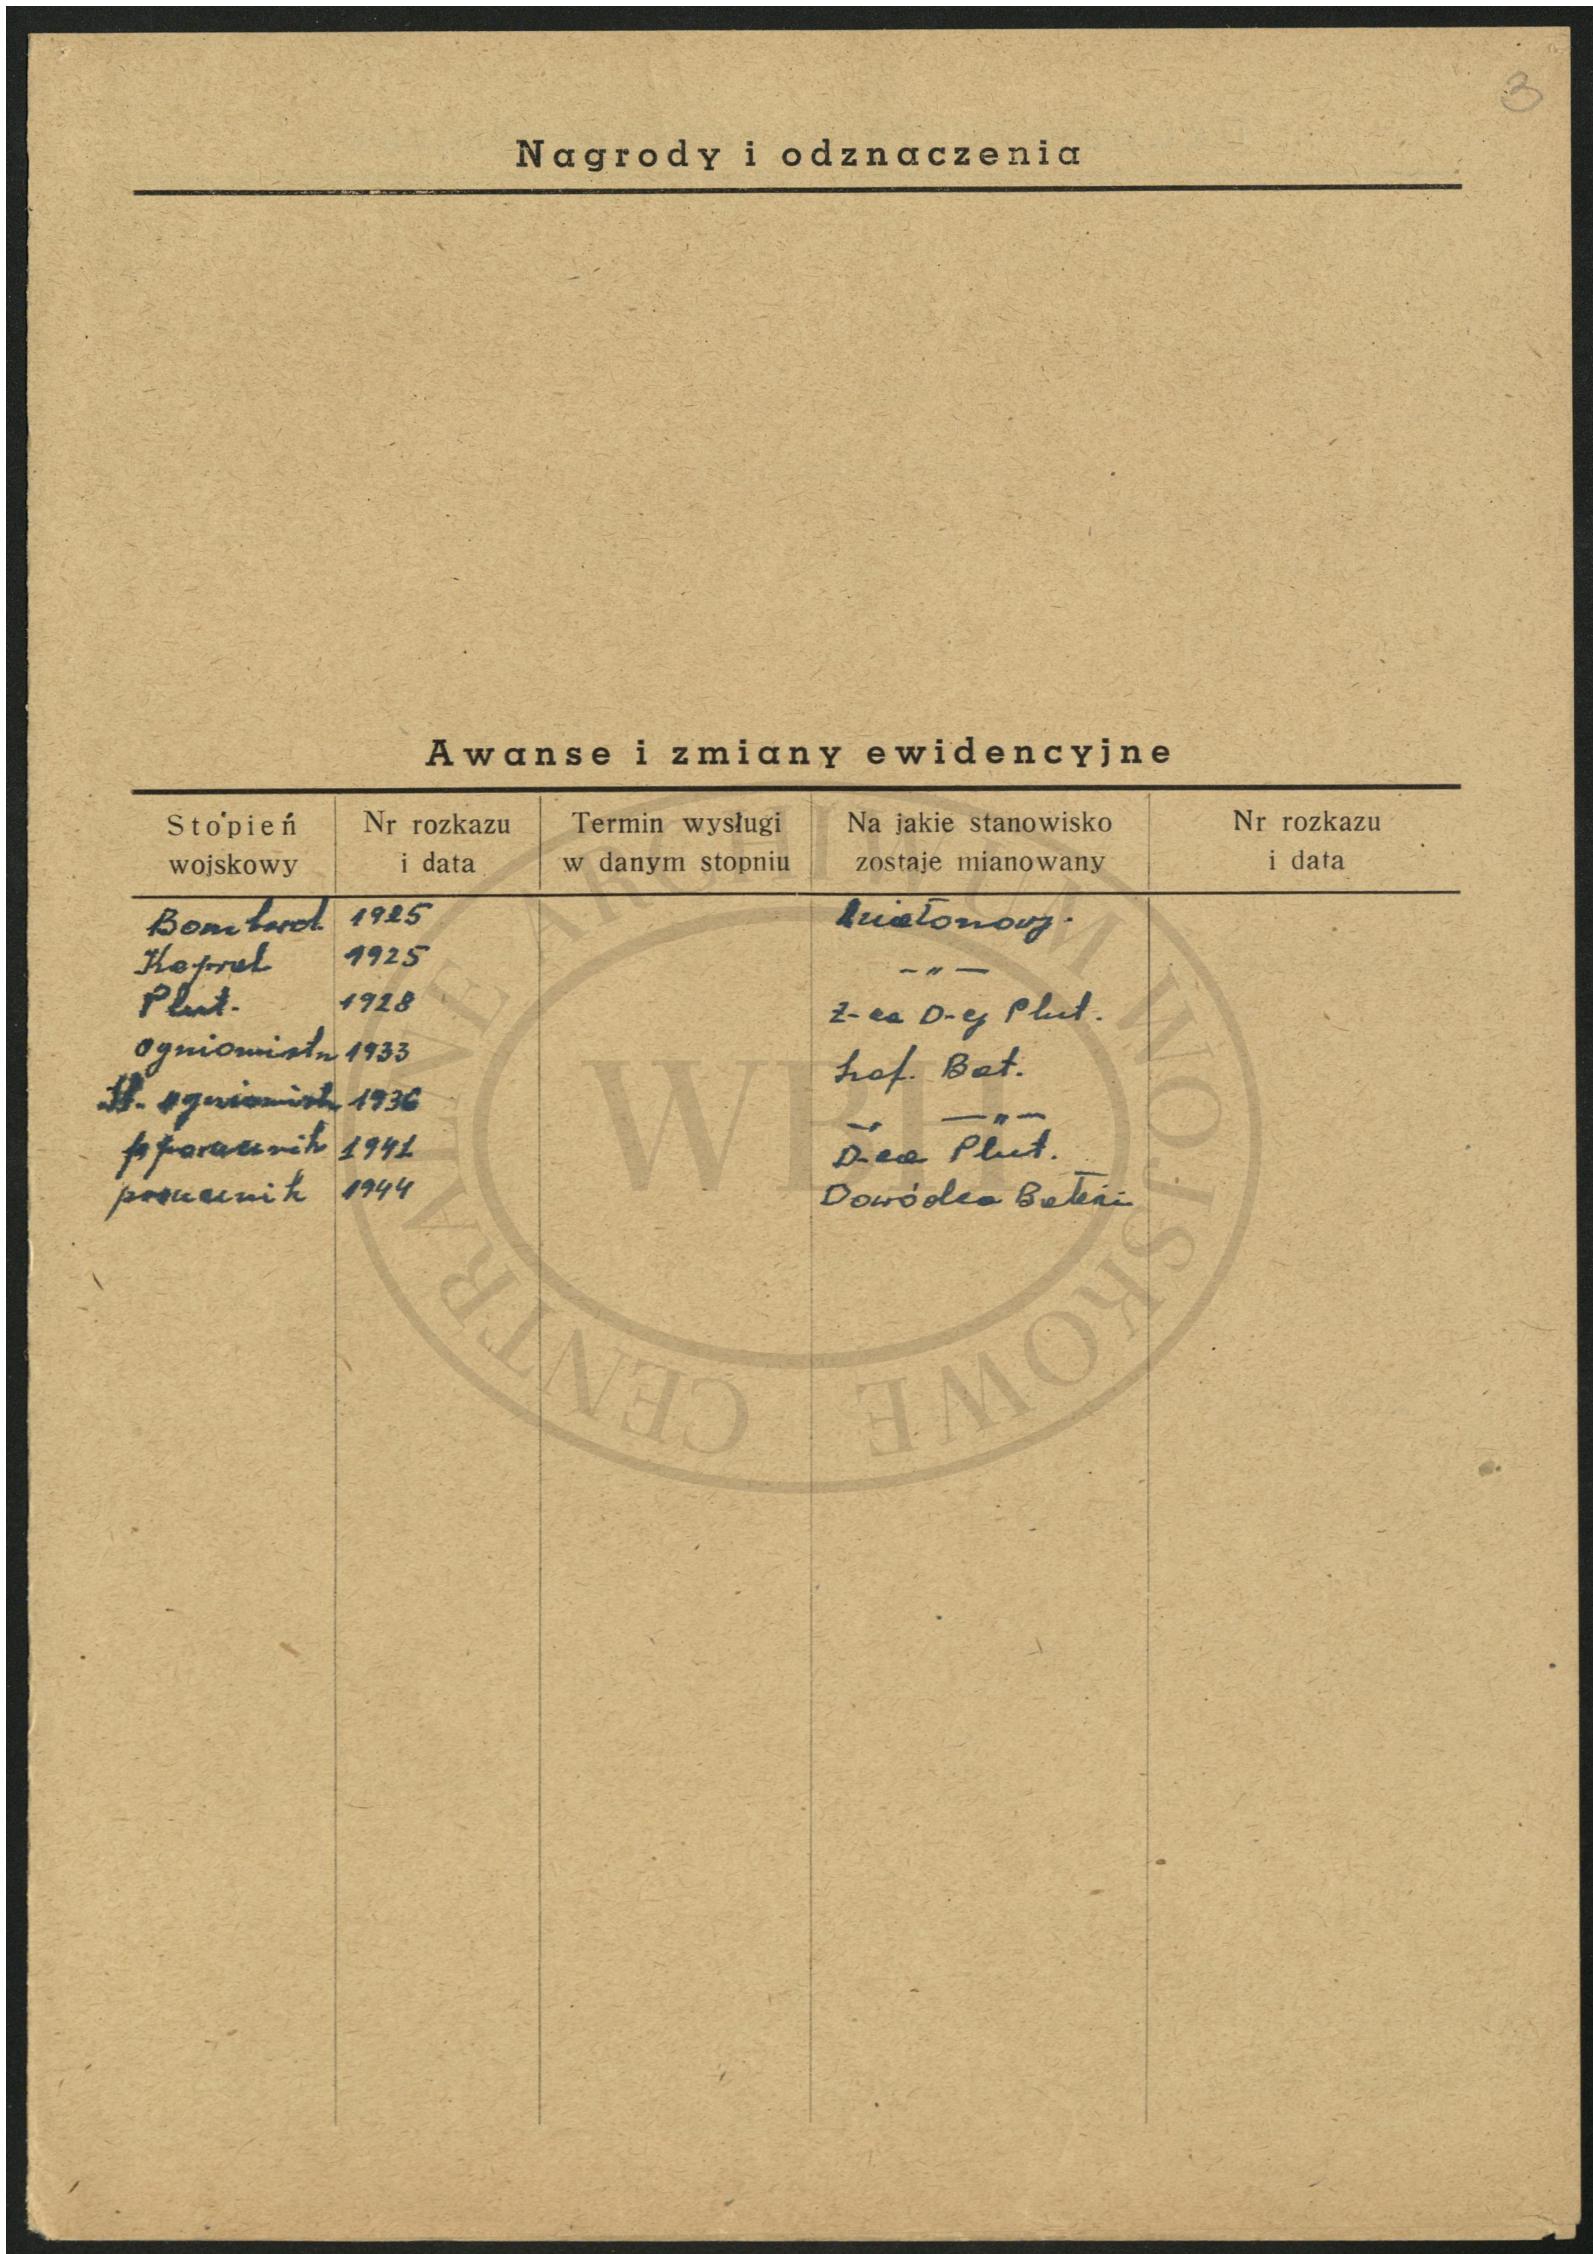 3
Nagrody i odznaczenia
Awanse i zmiany ewidencyjne
Stopień wojskowy Nr rozkazu i data Termin wysługi w danym stopniu Na jakie stanowisko zostaje mianowany Nr rozkazu i data
Bombard. 1925 Działonowy.
Kapral 1925 -"-
Plut. 1928 Z-ca D-cy Plut.
ogniomistrz 1933 Szef. Bat.
St. ogniomistrz 1936 -"-
pporucznik 1941 D-ca Plut.
porucznik 1944 Dowódca Baterii
CENTRALNE ARCHIWUM WOJSKOWE
WBH